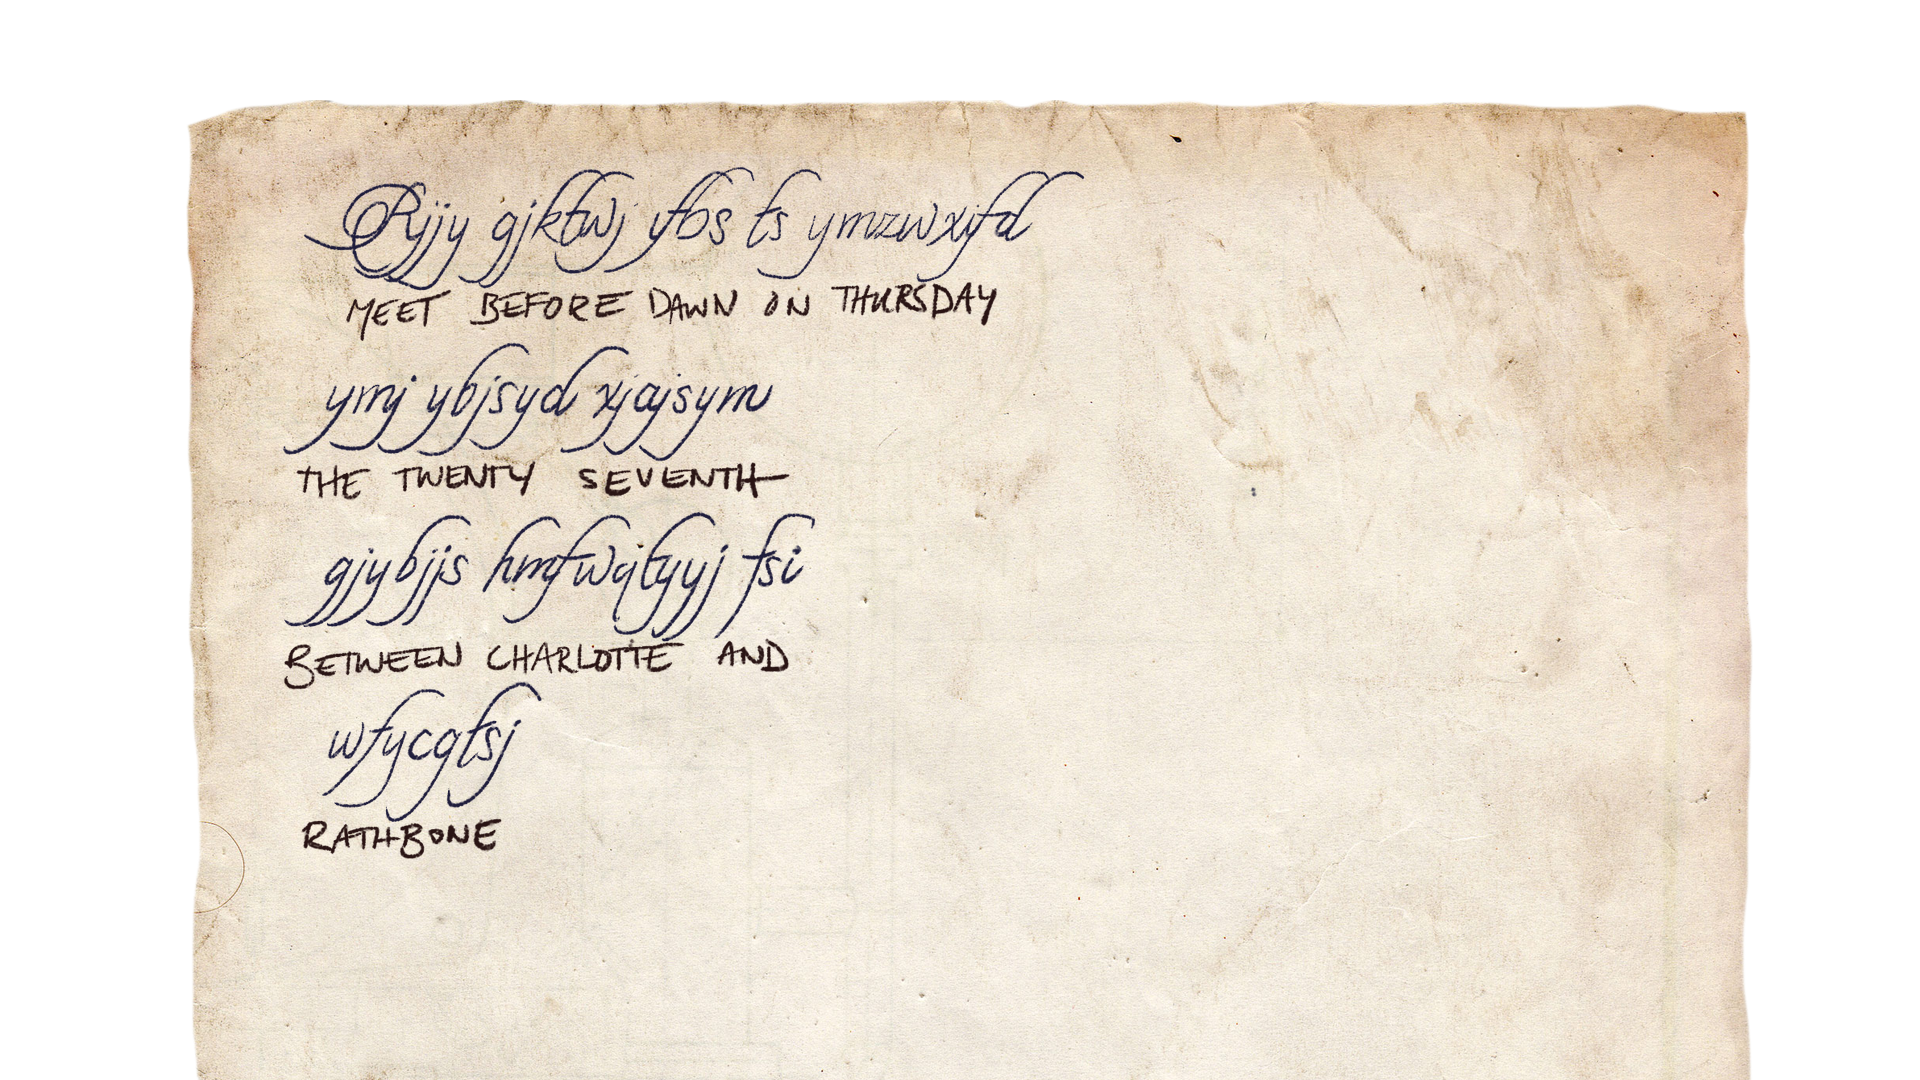 Rjjy gjktwj ifbs ts ymzwxifd
MEET BEFORE DAWN ON THURSDAY
ymj ybjsyd xjajsym
THE TWENTY SEVENTH
gjybjjs hmfwqtyyj fsi
BETWEEN CHARLOTTE AND
wfycgtsj
RATHBONE